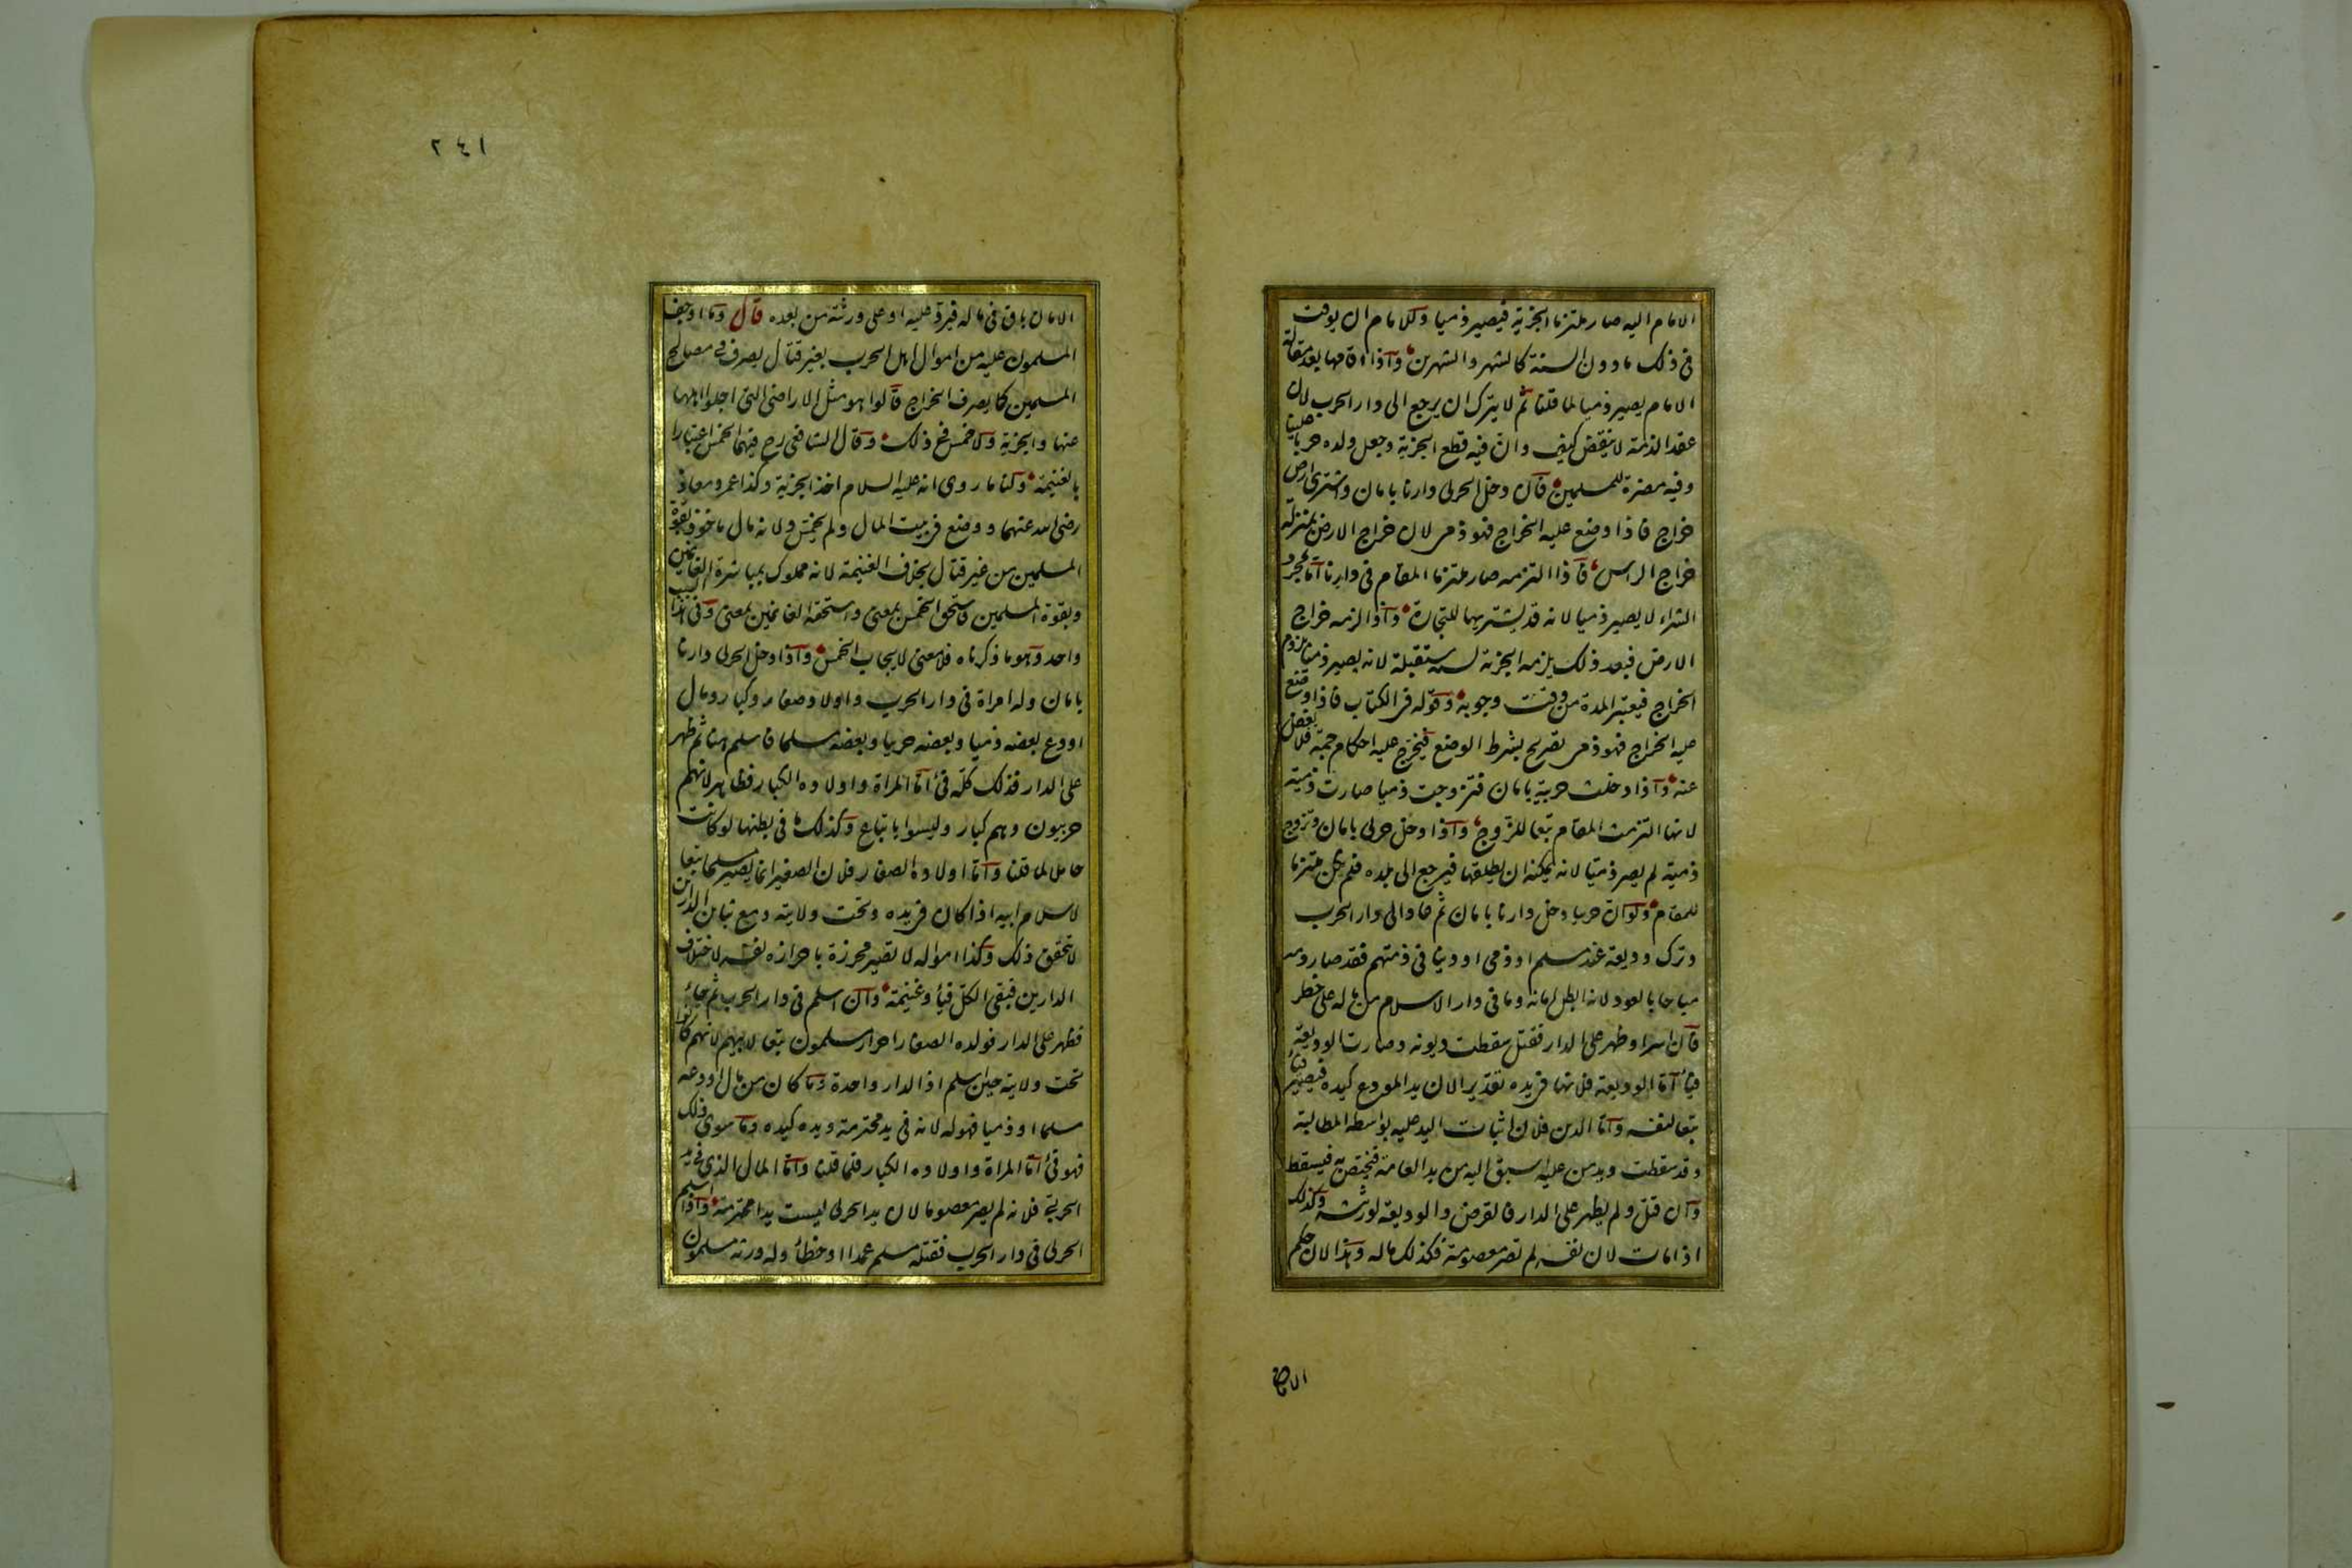 الامام اليه صار ملتزما الجزية فيصير ذميا وللامام ان يوقت
فى ذلك ما دون السنة كالشهر والشهرين واذا اقامها بعد مقالة
الامام يصير ذميا لما قلنا ثم لا يترك ان يرجع الى دار الحرب لان
عقد الذمة لا ينقض كيف وان فيه قطع الجزية وجعل ولده حربا علينا
وفيه مضرة للمسلمين قال دخل الحربى دارنا بامان واشترى ارض
خراج فاذا وضع عليه الخراج فهو ذمى لان خراج الارض بمنزلة
خراج الراس فاذا التزمه صار ملتزما المقام فى دارنا اما بمجرد
الشراء لا يصير ذميا لانه قد يشتريها للتجارة واذا لزمه خراج
الارض فبعد ذلك يلزمه الجزية لسنة مستقبلة لانه يصير ذميا بلزوم
الخراج فيعتبر المدة من وقت وجوبه وقوله فى الكتاب فاذا وضع
عليه الخراج فهو ذمى تصريح بشرط الوضع فيتخرج عليه احكام جمة فلا يغفل
عنه واذا دخلت حربية بامان فتزوجت ذميا صارت ذمية
لانها التزمت المقام تبعا للزوج واذا دخل حربى بامان وتزوج
ذمية لم يصر ذميا لانه يمكنه ان يطلقها فيرجع الى بلده فلم يكن ملتزما
للمقام ولو ان حربيا دخل دارنا بامان ثم عاد الى دار الحرب
وترك وديعة عند مسلم او ذمى او دينا فى ذمتهم فقد صار دمه
مباحا بالعود لانه ابطل امانه وما فى دار الاسلام من ماله على خطر
فان اسر او ظهر على الدار فقتل سقطت ديونه وصارت الوديعة
فيئا اما الوديعة فلانها فى يده تقديرا لان يد المودع كيده فيصير فيئا
تبعا لنفسه واما الدين فلان اثبات اليد عليه بواسطة المطالبة
وقد سقطت ويد من عليه اسبق اليه من يد العامة فيختص به فيسقط
وان قتل ولم يظهر على الدار فالقرض والوديعة لورثته وكذلك
اذا مات لان نفسه لم تصر مغنومة فكذلك ماله وهذا لان حكم
الامان
٢٤١
الامان باق فى ماله فيرد عليه او على ورثته من بعده قال وما اوجف
المسلمون عليه من اموال اهل الحرب بغير قتال يصرف فى مصالح
المسلمين كما يصرف الخراج قالوا هو مثل الاراضى التى اجلوا اهلها
عنها والجزية ولا خمس فى ذلك وقال الشافعى رح فيهما الخمس اعتبارا
بالغنيمة ولنا ما روى انه عليه السلام اخذ الجزية وكذا عمر ومعاذ
رضى الله عنهما ووضع فى بيت المال ولم يخمس ولانه مال ماخوذ بقوة
المسلمين من غير قتال بخلاف الغنيمة لانه مملوك بمباشرة الغانمين
وبقوة المسلمين فاستحق الخمس بمعنى واستحقه الغانمين بمعنى وفى هذا السبب
واحد وهو ما ذكرناه فلا معنى لايجاب الخمس واذا دخل الحربى دارنا
بامان وله امراة فى دار الحرب واولاد صغار وكبار ومال
اودع بعضه ذميا وبعضه حربيا وبعضه مسلما فاسلم هنا ثم ظهر
على الدار فذلك كله فئ اما المراة واولاده الكبار فظاهر لانهم
حربيون وهم كبار وليسوا باتباع وكذلك ما فى بطنها لو كانت
حاملا لما قلنا واما اولاده الصغار فلان الصغير انما يصير مسلما تبعا
لاسلام ابيه اذا كان فى يده وتحت ولايته ومع تباين الدارين
لا يتحقق ذلك وكذا امواله لا تصير محرزة باحرازه نفسه لاختلاف
الدارين فبقى الكل فيئا وغنيمة وان اسلم فى دار الحرب ثم جاء
فظهر على الدار فولده الصغار احرار مسلمون تبعا لابيهم لانهم كانوا
تحت ولايته حين اسلم اذ الدار واحدة وما كان من مال اودعه
مسلما او ذميا فهو له لانه فى يد محترمة ويده كيده وما سوى ذلك
فهو فئ اما المراة واولاده الكبار فلما قلنا واما المال الذى فى يد
الحربى فلانه لم يصر معصوما لان يد الحربى ليست يدا محترمة واذا اسلم
الحربى فى دار الحرب فقتله مسلم عمدا او خطأ وله ورثة مسلمون